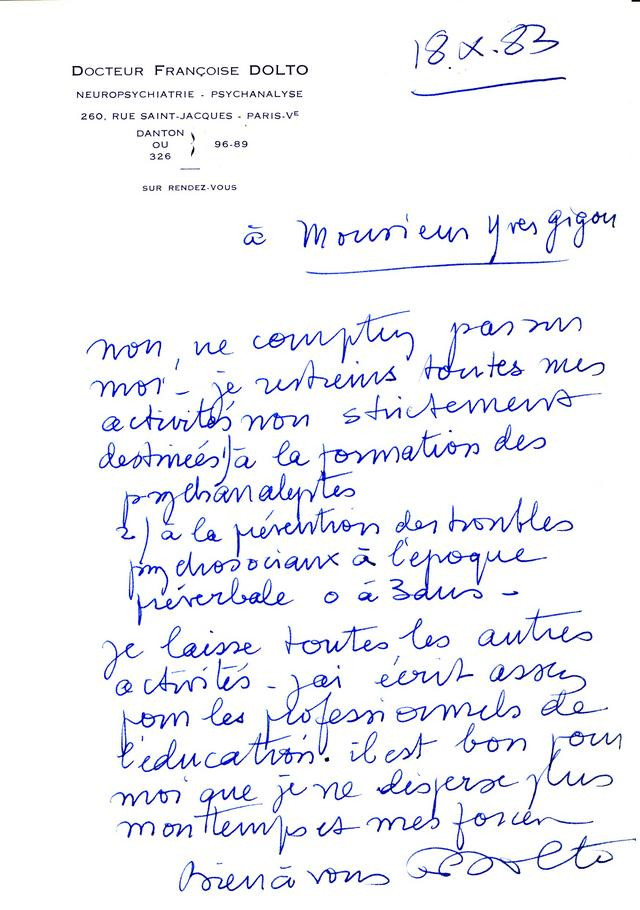 18.X.83
DOCTEUR FRANÇOISE DOLTO
NEUROPSYCHIATRIE - PSYCHANALYSE
260, RUE SAINT-JACQUES - PARIS-VE
DANTON
OU } 96-89
326
SUR RENDEZ-VOUS
à Monsieur Yves Gigou
non, ne comptez pas sur
moi - je restreins toutes mes
activités non strictement
destinées 1) à la formation des
psychanalystes
2) à la prévention des troubles
psychosociaux à l'époque
préverbale 0 à 3 ans -
je laisse toutes les autres
activités - j'ai écrit assez
pour les professionnels de
l'éducation. il est bon pour
moi que je ne disperse plus
mon temps et mes forces
Bien à vous F Dolto